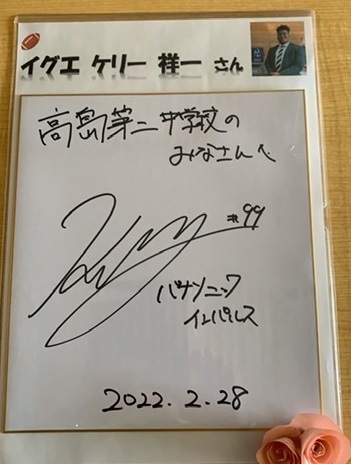 イグエ ケリー 祥一 さん
高島第二中学校の
みなさんへ
#99
パナソニック
インパルス
2022.2.28